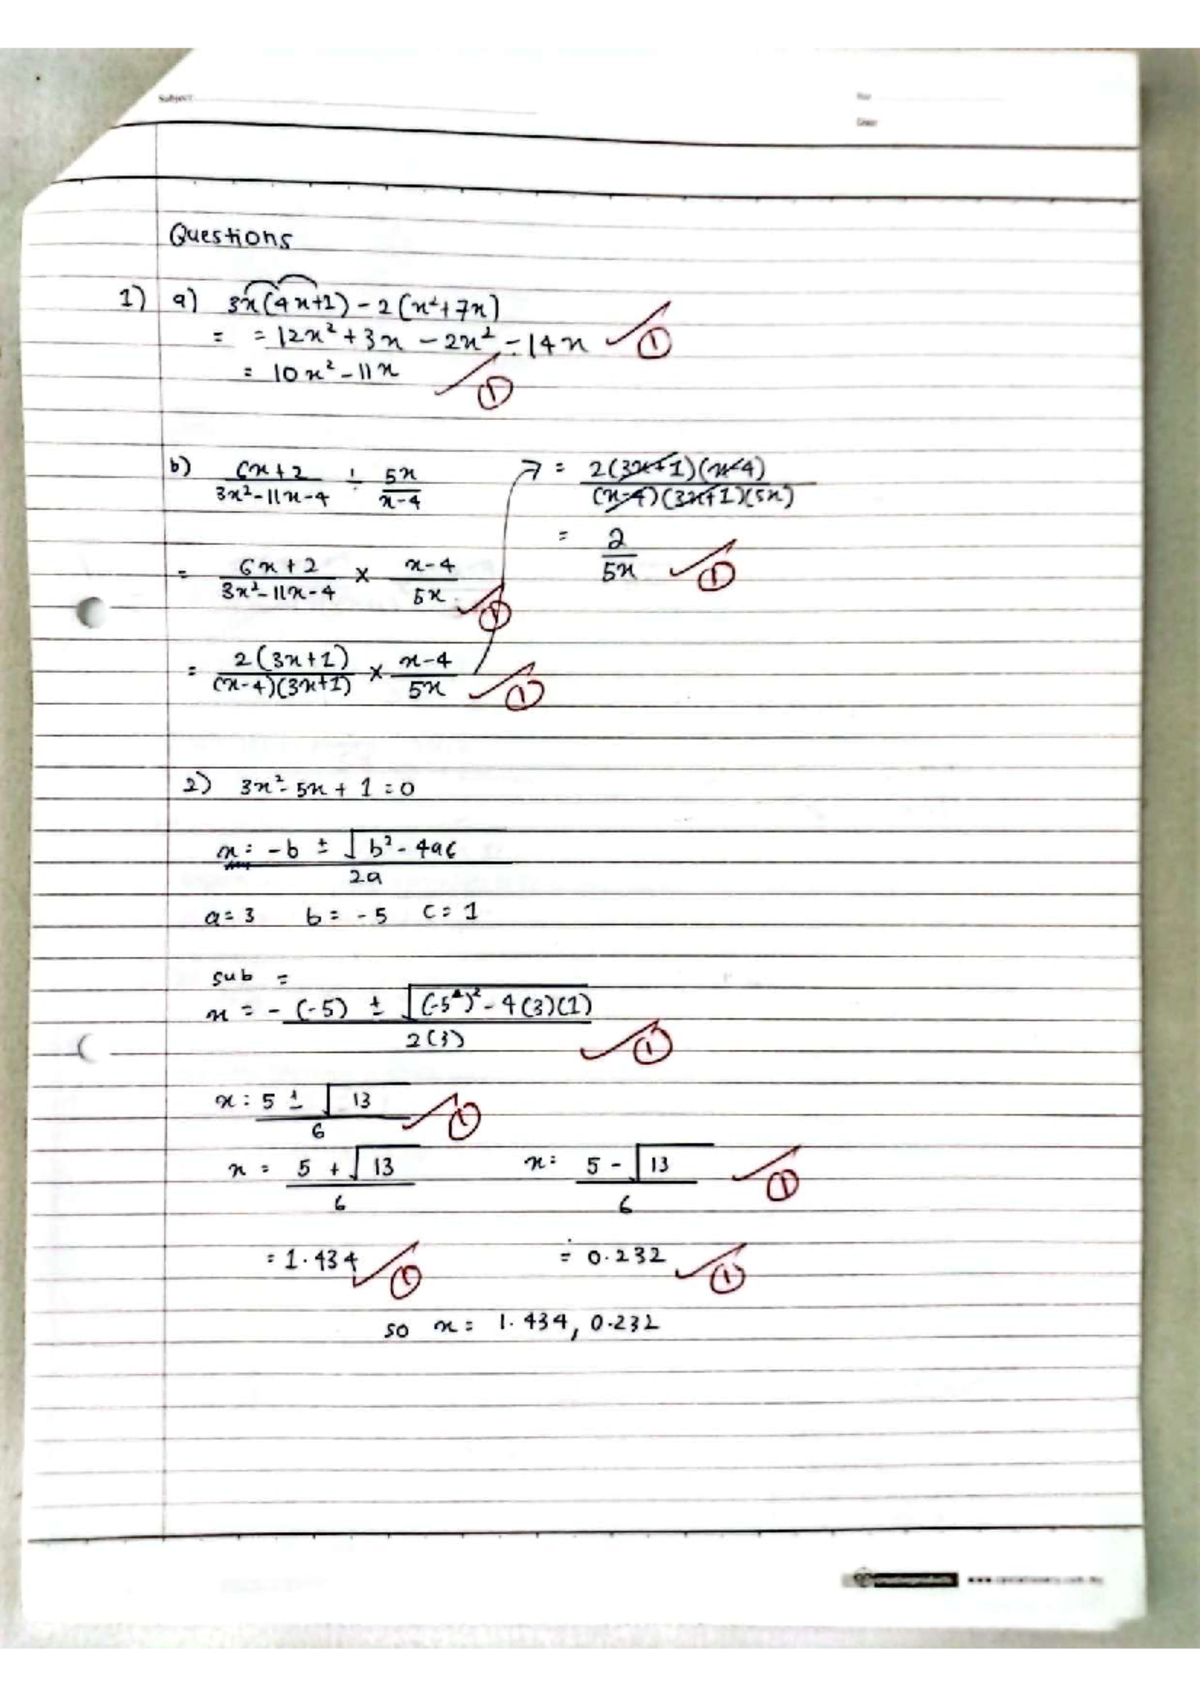 Subject
No
Date
Questions
1) a) 3x(4x+1) - 2(x²+7x)
= = 12x² + 3x - 2x² - 14x ①
= 10x² - 11x ①
b) 6x+2 / 3x²-11x-4 ÷ 5x / x-4
= 6x+2 / 3x²-11x-4 × x-4 / 5x ①
= 2(3x+1) / (x-4)(3x+1) × x-4 / 5x ①
= 2(3x+1)(x-4) / (x-4)(3x+1)(5x)
= 2 / 5x ①
2) 3x² - 5x + 1 = 0
x = -b ± √b² - 4ac / 2a
a = 3 b = -5 c = 1
sub =
x = -(-5) ± √(-5)² - 4(3)(1) / 2(3) ①
x = 5 ± √13 / 6 ①
x = 5 + √13 / 6 x = 5 - √13 / 6 ①
= 1.434 ① = 0.232 ①
so x = 1.434, 0.232